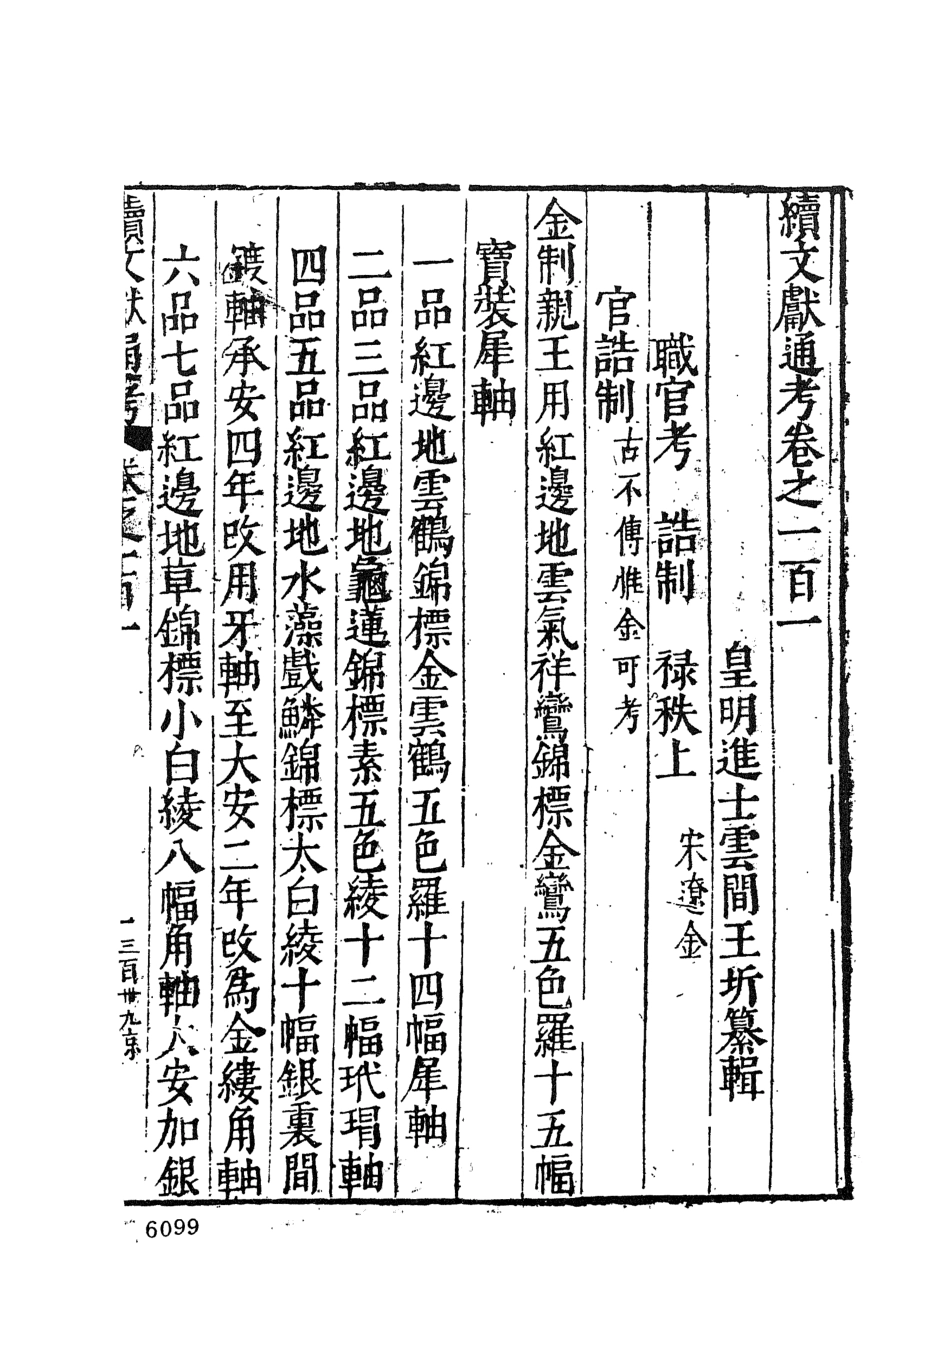 續文獻通考卷之一百一
皇明進士雲間王圻纂輯
職官考　誥制　祿秩上　宋遼金
官誥制　古不傳惟金可考
金制親王用紅邊地雲氣祥鸞錦標金鸞五色羅十五幅
寶裝犀軸
一品紅邊地雲鶴錦標金雲鶴五色羅十四幅犀軸
二品三品紅邊地龜蓮錦標素五色綾十二幅玳瑁軸
四品五品紅邊地水藻戲鱗錦標太白綾十幅銀裏間
鍍軸承安四年改用牙軸至大安二年改爲金縷角軸
六品七品紅邊地草錦標小白綾八幅角軸大安加銀
續文獻通考　卷之一百一
一三百卅九京
6099